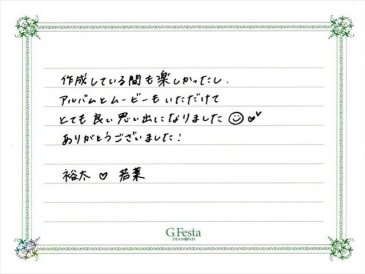 作成している間も楽しかったし、
アルバムとムービーもいただけて
とても良い思い出になりました
ありがとうございました!
裕太 ♡ 若菜
G.Festa
DIAMOND